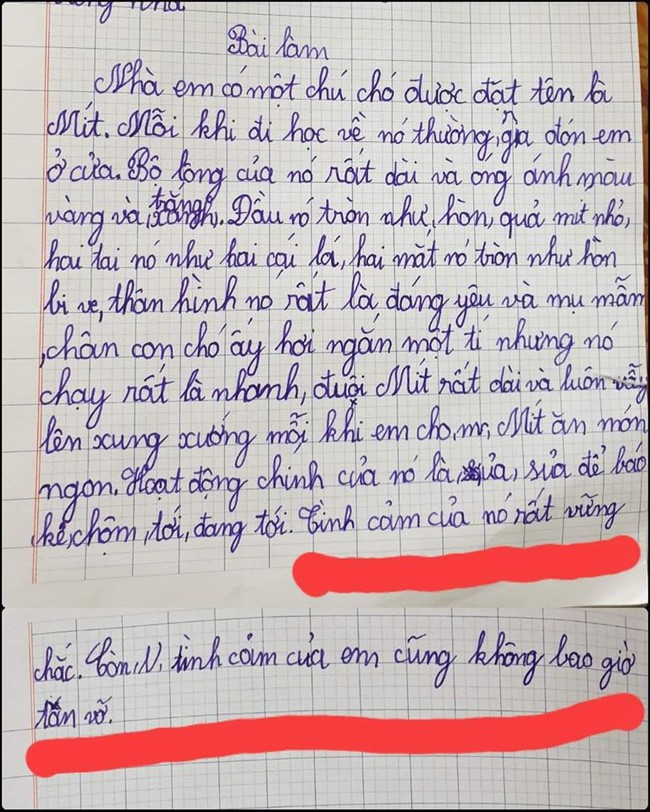 Bài làm
Nhà em có một chú chó được đặt tên là
Mít. Mỗi khi đi học về nó thường, ra đón em
ở cửa. Bộ lông của nó rất dài và ong ánh màu
vàng và trắng. Đầu nó tròn như, hòn, quả mít nhỏ,
hai tai nó như hai cái lá, hai mắt nó tròn như hòn
bi ve, thân hình nó rất là đáng yêu và mụ mẫm
, chân con chó ấy hơi ngắn một tí nhưng nó
chạy rất là nhanh, đuôi Mít rất dài và luôn vẫy
lên xung xướng mỗi khi em cho, mr, Mít ăn món
ngon. Hoạt động chính của nó là, sủa, sủa để báo
kẻ, chộm, tới, đang tới. Tình cảm của nó rất vững
chắc. Còn, N, tình cảm của em cũng không bao giờ
tan vỡ.